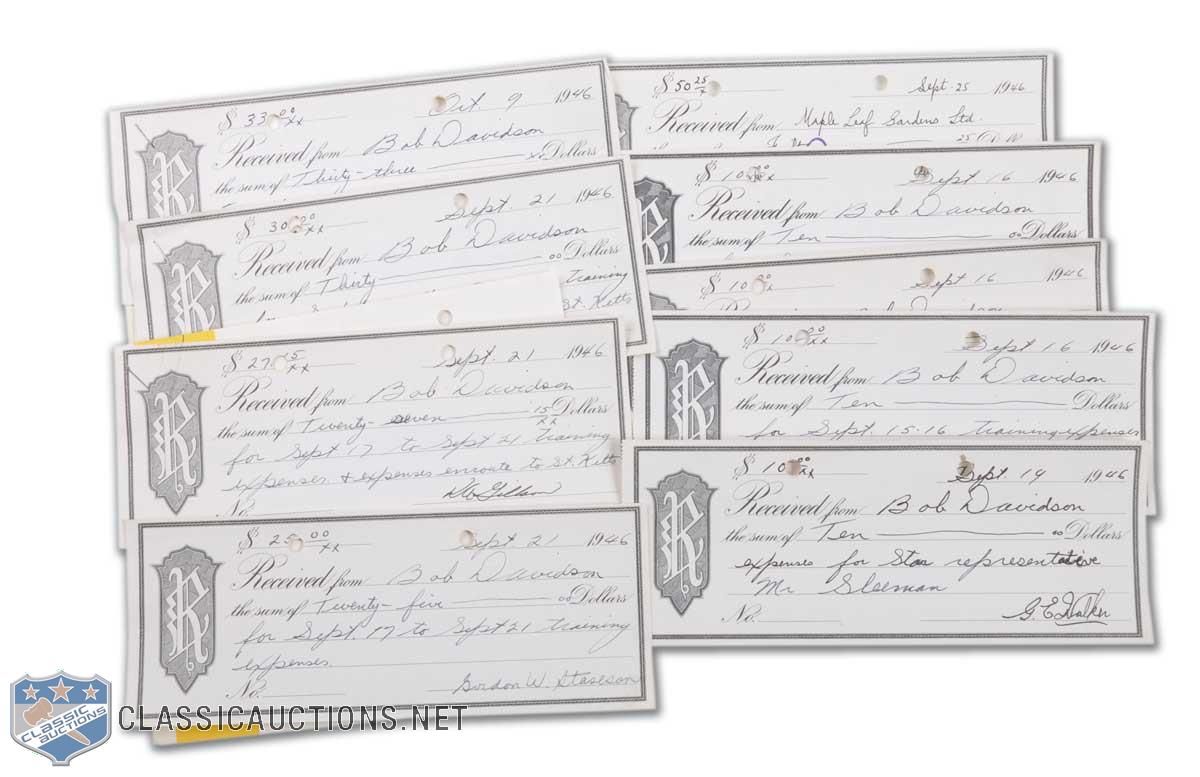 $ 33 00/xx Oct. 9 1946
Received from Bob Davidson
the sum of Thirty-three xx Dollars
$ 30 00/xx Sept. 21 1946
Received from Bob Davidson
the sum of Thirty 00 Dollars
training
St. Kitts
$ 27 15/xx Sept. 21 1946
Received from Bob Davidson
the sum of Twenty-seven 15/xx Dollars
for Sept 17 to Sept 21 training
expenses & expenses enroute to St. Kitts
No.
$ 25 00/xx Sept 21 1946
Received from Bob Davidson
the sum of Twenty-five 00 Dollars
for Sept. 17 to Sept 21 training
expenses.
No. Gordon W. Staseson
$ 50 25/x Sept. 25 1946
Received from Maple Leaf Gardens Ltd.
$ 10 00/xx Sept 16 1946
Received from Bob Davidson
the sum of Ten 00 Dollars
$ 10 00 Sept 16 1946
$ 10 00/xx Sept 16 1946
Received from Bob Davidson
the sum of Ten Dollars
for Sept. 15-16 training expenses
$ 10 00/xx Sept. 19 1946
Received from Bob Davidson
the sum of Ten 00 Dollars
expenses for Star representative
Mr Sleeman
No. G. E. Walker
CLASSIC AUCTIONS
CLASSICAUCTIONS.NET